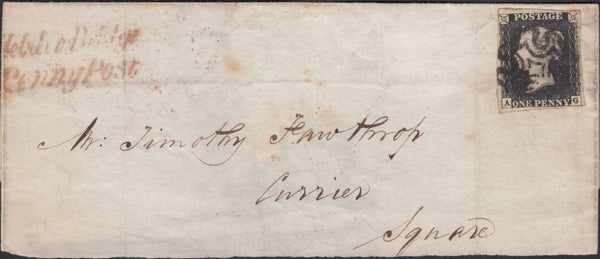 Penny Post
POSTAGE
A ONE PENNY G
Mr. Timothy Fawthrop
Currier
Square